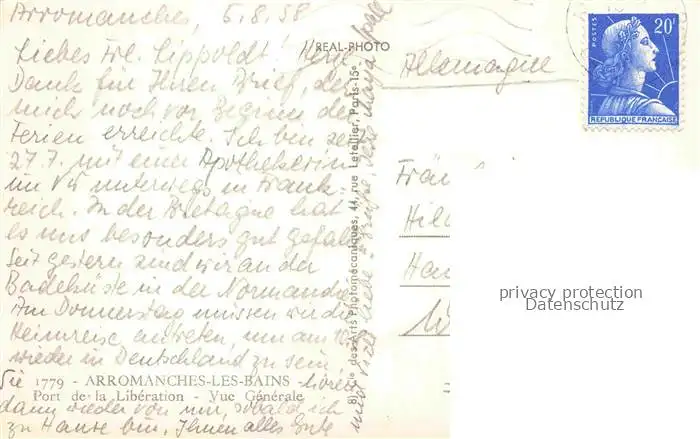 Arromanches, 6.8.58
Liebes Frl. Lippoldt! Herzl.
Dank für Ihren Brief, der
mich noch vor Beginn der
Ferien erreichte. Ich bin seit
27.7. mit einer Apothekerin
im VW unterwegs in Frank-
reich. In der Bretagne hat
es uns besonders gut gefallen
Seit gestern sind wir an der
Badeküste in der Normandie
Am Donnerstag müssen wir die
Heimreise antreten, um am 10.
wieder in Deutschland zu sein.
Sie hören
dann wieder von mir, sobald ich
zu Hause bin. Ihnen alles Gute
und viele liebe Grüße, Ihre
1779 - ARROMANCHES-LES-BAINS
Port de la Libération - Vue Générale
REAL-PHOTO
des Arts Photomécaniques, 44, rue Letellier, Paris-15e
Allemagne
POSTES
20F
REPUBLIQUE FRANÇAISE
Frä
Hil
Ha
W
privacy protection
Datenschutz